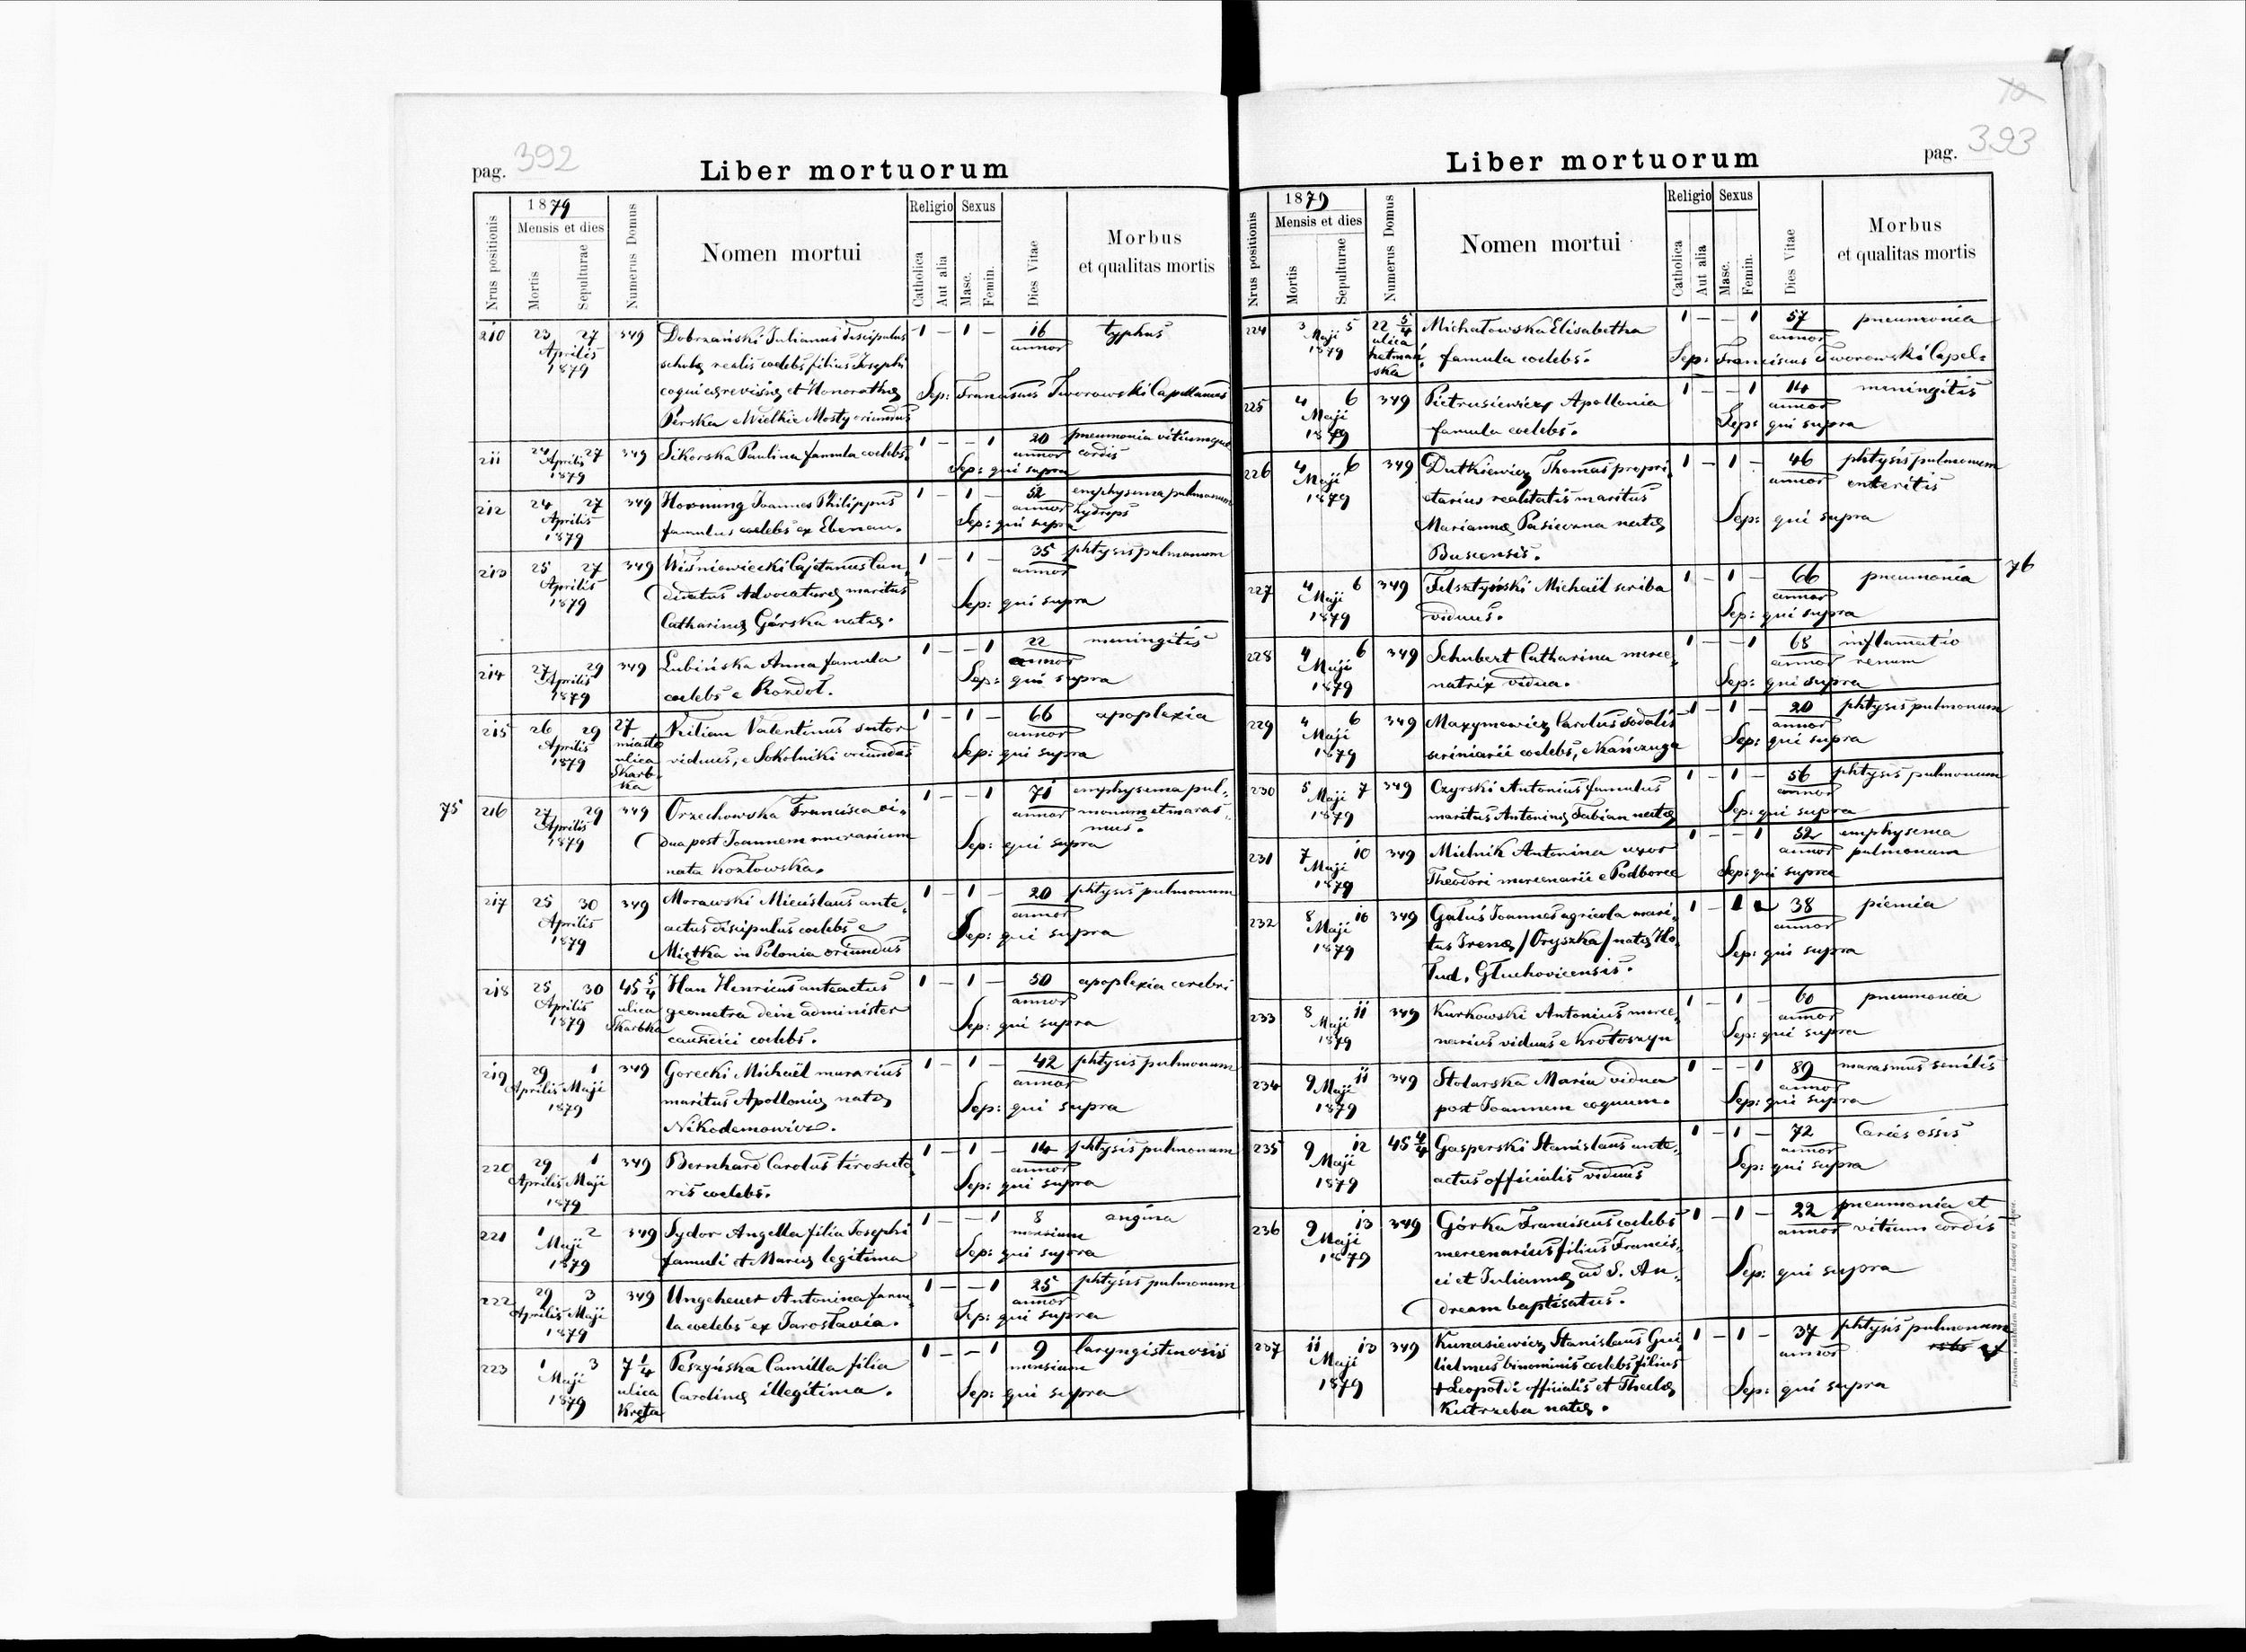 pag. 392
Liber mortuorum
Nrus positionis
1879
Mensis et dies
Mortis
Sepulturae
Numerus Domus
Nomen mortui
Religio
Catholica
Aut alia
Sexus
Masc.
Femin.
Dies Vitae
Morbus
et qualitas mortis
210 23 27 349 Dobrzański Julianus discipulus 1 - 1 - 16 typhus
Aprilis schola realis coelebs filius Josephi annor
1879 coqui cerevisiae et Honorathae Sep: Franciscus Tworowski Capellanus
Perska e Wielkie Mosty oriundus
211 24 27 349 Sikorska Paulina famula coelebs. 1 - - 1 20 pneumonia vitiumque
Aprilis annor cordis
1879 Sep: qui supra
212 24 27 349 Hornung Joannes Philippus 1 - 1 - 52 emphysema pulmonum
Aprilis famulus coelebs ex Ebenau. annor hydrops
1879 Sep: qui supra
213 25 27 349 Wiśniowiecki Cajetanus Can- 1 - 1 - 35 phtysis pulmonum
Aprilis didatus Advocaturae maritus annor
1879 Catharinae Górska natae. Sep: qui supra
214 27 29 349 Lubińska Anna famula 1 - - 1 22 meningitis
Aprilis coelebs e Rozdoł. annor
1879 Sep: qui supra
215 26 29 27 Kilian Valentinus sutor 1 - 1 - 66 apoplexia
Aprilis miasto viduus, e Sokolniki oriundus annor
1879 ulica Sep: qui supra
Skarb-
ka
75 216 27 29 349 Orzechowska Francisca vi- 1 - - 1 71 emphysema pul-
Aprilis dua post Joannem murarium annor monum et maras-
1879 nata Kozłowska. Sep: qui supra mus.
217 25 30 349 Morawski Miecislaus ante- 1 - 1 - 20 phtysis pulmonum
Aprilis actus discipulus coelebs e annor
1879 Miętka in Polonia oriundus Sep: qui supra
218 25 30 45 5/4 Han Henricus anteactus 1 - 1 - 50 apoplexia cerebri
Aprilis ulica geometra dein administer annor
1879 Skarbka causidici coelebs. Sep: qui supra
219 29 1 349 Gorecki Michaël murarius 1 - 1 - 42 phtysis pulmonum
Aprilis Maji maritus Apolloniae natae annor
1879 Nikodemowicz. Sep: qui supra
220 29 1 349 Bernhard Carolus tiro suto- 1 - 1 - 14 phtysis pulmonum
Aprilis Maji ris coelebs. annor
1879 Sep: qui supra
221 1 2 349 Sydor Angella filia Josephi 1 - - 1 8 angina
Maji famuli et Mariae legitima mensium
1879 Sep: qui supra
222 29 3 349 Ungeheuer Antonina famu- 1 - - 1 25 phtysis pulmonum
Aprilis Maji la coelebs ex Jaroslavia. annor
1879 Sep: qui supra
223 1 3 7 1/4 Peszyńska Camilla filia 1 - - 1 9
Maji ulica Carolinae illegitima. mensium
1879 Kręta Sep: qui supra
Liber mortuorum
pag. 393
Nrus positionis
1879
Mensis et dies
Mortis
Sepulturae
Numerus Domus
Nomen mortui
Religio
Catholica
Aut alia
Sexus
Masc.
Femin.
Dies Vitae
Morbus
et qualitas mortis
224 3 5 22 5/4 Michałowska Elisabetha 1 - - 1 57 pneumonia
Maji ulica famula coelebs. annor
1879 hetmań- Sep: Franciscus Tworowski Capel-
ska
225 4 6 349 Pietrusiewicz Apollonia 1 - - 1 14 meningitis
Maji famula coelebs. annor
1879 Sep: qui supra
226 4 6 349 Dutkiewicz Thomas propri- 1 - 1 - 46 phtysis pulmonum
Maji etarius realitatis maritus annor enteritis
1879 Mariannae Pasieczna natae Sep: qui supra
Buscensis.
227 4 6 349 Felsztyński Michaël scriba 1 - 1 - 66 pneumonia 76
Maji viduus. annor
1879 Sep: qui supra
228 4 6 349 Schubert Catharina merce- 1 - - 1 68 inflamatio
Maji natrix vidua. annor renum
1879 Sep: qui supra
229 4 6 349 Maxymowicz Carolus sodalis 1 - 1 - 20 phtysis pulmonum
Maji scriniarii coelebs, e Kańczuga annor
1879 Sep: qui supra
230 5 7 349 Czyrski Antonius famulus 1 - 1 - 56 phtysis pulmonum
Maji maritus Antoninae Fabian natae annor
1879 Sep: qui supra
231 7 10 349 Mielnik Antonina uxor 1 - - 1 52 emphysema
Maji Theodori mercenarii e Podborce annor pulmonum
1879 Sep: qui supra
232 8 10 349 Gałus Joannes agricola mari- 1 - 1 - 38 piemia
Maji tus Irenae /Oryszka/ natae Ho- annor
1879 Tud, Głuchovicensis. Sep: qui supra
233 8 11 349 Kurkowski Antonius merce- 1 - 1 - 60 pneumonia
Maji narius viduus e Krotoszyn annor
1879 Sep: qui supra
234 9 11 349 Stolarska Maria vidua 1 - - 1 89 marasmus senilis
Maji post Joannem coquum. annor
1879 Sep: qui supra
235 9 12 45 4/4 Gasperski Stanislaus ante- 1 - 1 - 72 Caries ossis
Maji actus officialis viduus annor
1879 Sep: qui supra
236 9 13 349 Górka Franciscus coelebs 1 - 1 - 22 pneumonia et
Maji mercenarius filius Francis- annor vitium cordis
1879 ci et Juliannae ad S. An- Sep: qui supra
dream baptisatus.
237 11 13 349 Kunasiewicz Stanislaus Gui- 1 - 1 - 37 phtysis pulmonum
Maji lielmus binominis coelebs filius annor
1879 + Leopoldi officialis et Theclae Sep: qui supra
Kutrzeba natae.